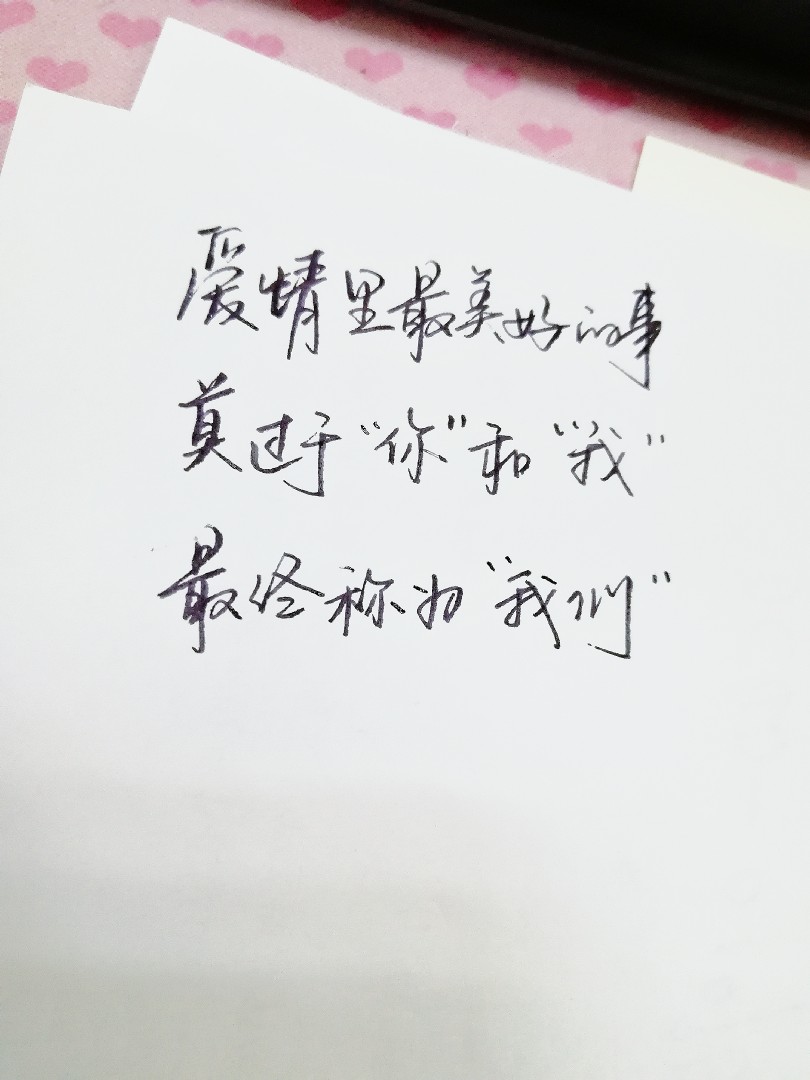 爱情里最美好的事
莫过于“你”和“我”
最终称为“我们”